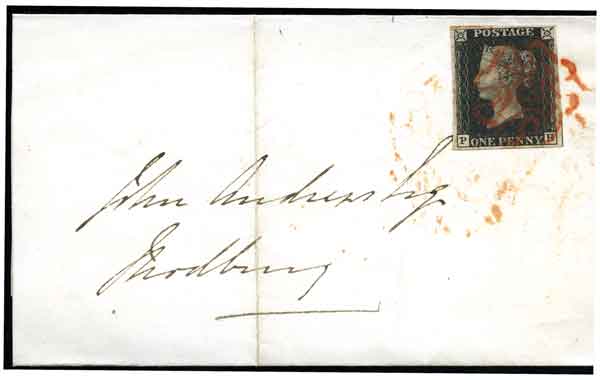 POSTAGE
P ONE PENNY H
John Andrews Esq
Modbury